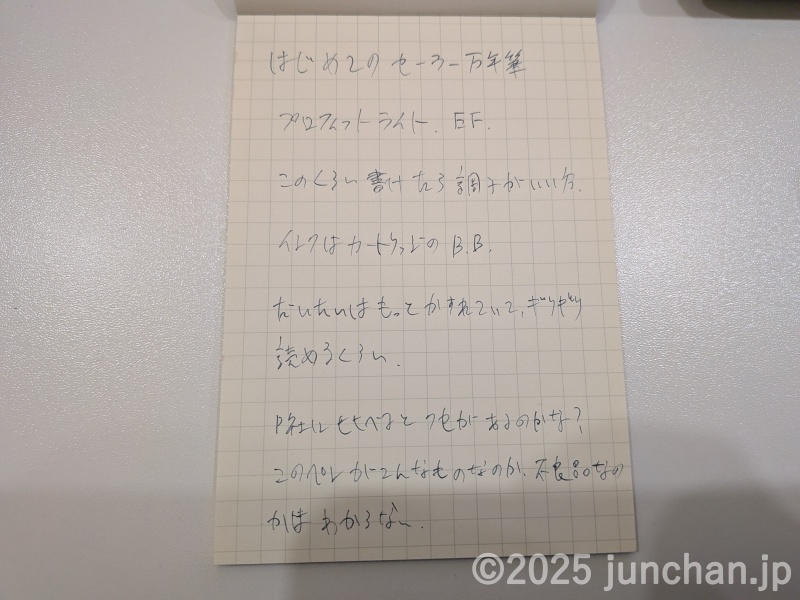 はじめてのセーラー万年筆
プロフィットライト. EF.
このくらい書けたら調子がいい方.
インクはカートリッジのB.B.
だいたいはもっとかすれていて、ギリギリ
読めるくらい.
P社にくらべるとクセがあるのかな?
このペンがこんなものなのか、不良品なの
かは わからない.
©2025 junchan.jp